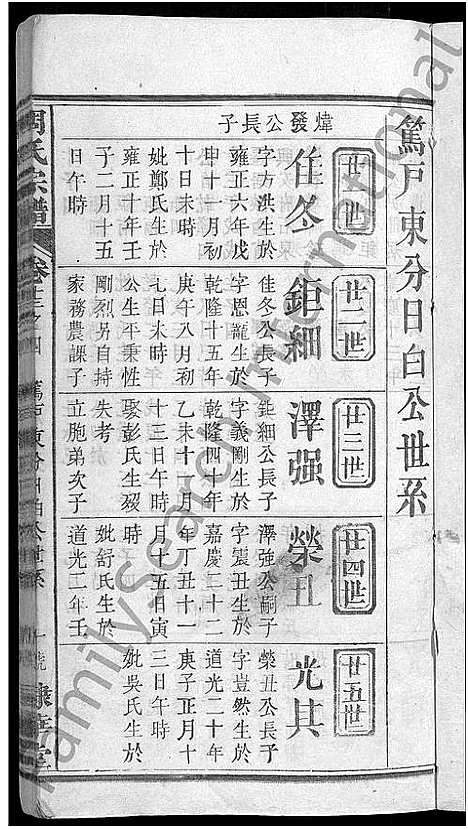 篤戶東分日白公世系
廿一世
煒發公長子
佳冬
字方洪生於
雍正六年戊
申十一月初
十日未時
妣鄭氏生於
雍正十年壬
子二月十五
日午時
廿二世
鉅細
佳冬公長子
字恩龍生於
乾隆十五年
庚午八月初
七日未時
公生平秉性
剛烈另自持
家務農課子
廿三世
澤强
鉅細公長子
字義剛生於
乾隆四十年
乙未十一月
十三日午時
娶彭氏生歿
失考
立胞弟次子
廿四世
榮丑
澤強公嗣子
字震丑生於
嘉慶二十二
年丁丑十一
月十五日寅
時
妣舒氏生於
道光二年壬
廿五世
光其
榮丑公長子
字豈然生於
道光二十年
庚子正月十
三日午時
妣吳氏生於
周氏宗譜
卷
公世系
FamilySearch International